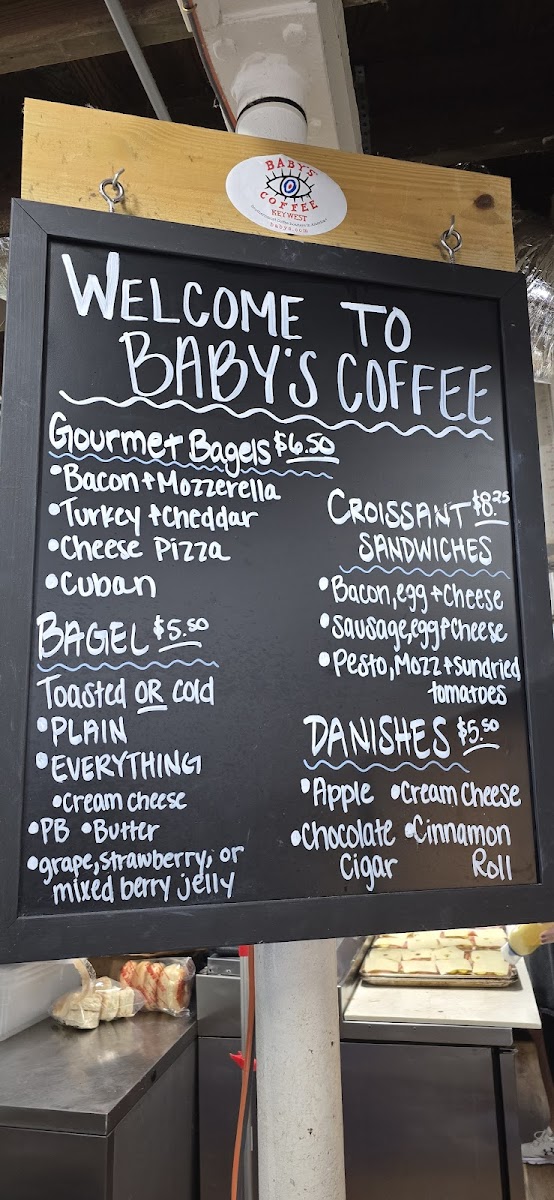 BABY'S
COFFEE
KEY WEST
babys.com
WELCOME TO
BABY'S COFFEE
Gourmet Bagels $6.50
•Bacon + Mozzerella
•Turkey + cheddar
•Cheese Pizza
•Cuban
BAGEL $5.50
Toasted OR cold
•PLAIN
•EVERYTHING
•cream cheese
•PB •Butter
•grape, strawberry, or
mixed berry jelly
CROISSANT $8.25
SANDWICHES
•Bacon, egg + cheese
•sausage, egg + cheese
•Pesto, Mozz + sundried
tomatoes
DANISHES $5.50
•Apple •cream cheese
•chocolate •Cinnamon
Cigar Roll